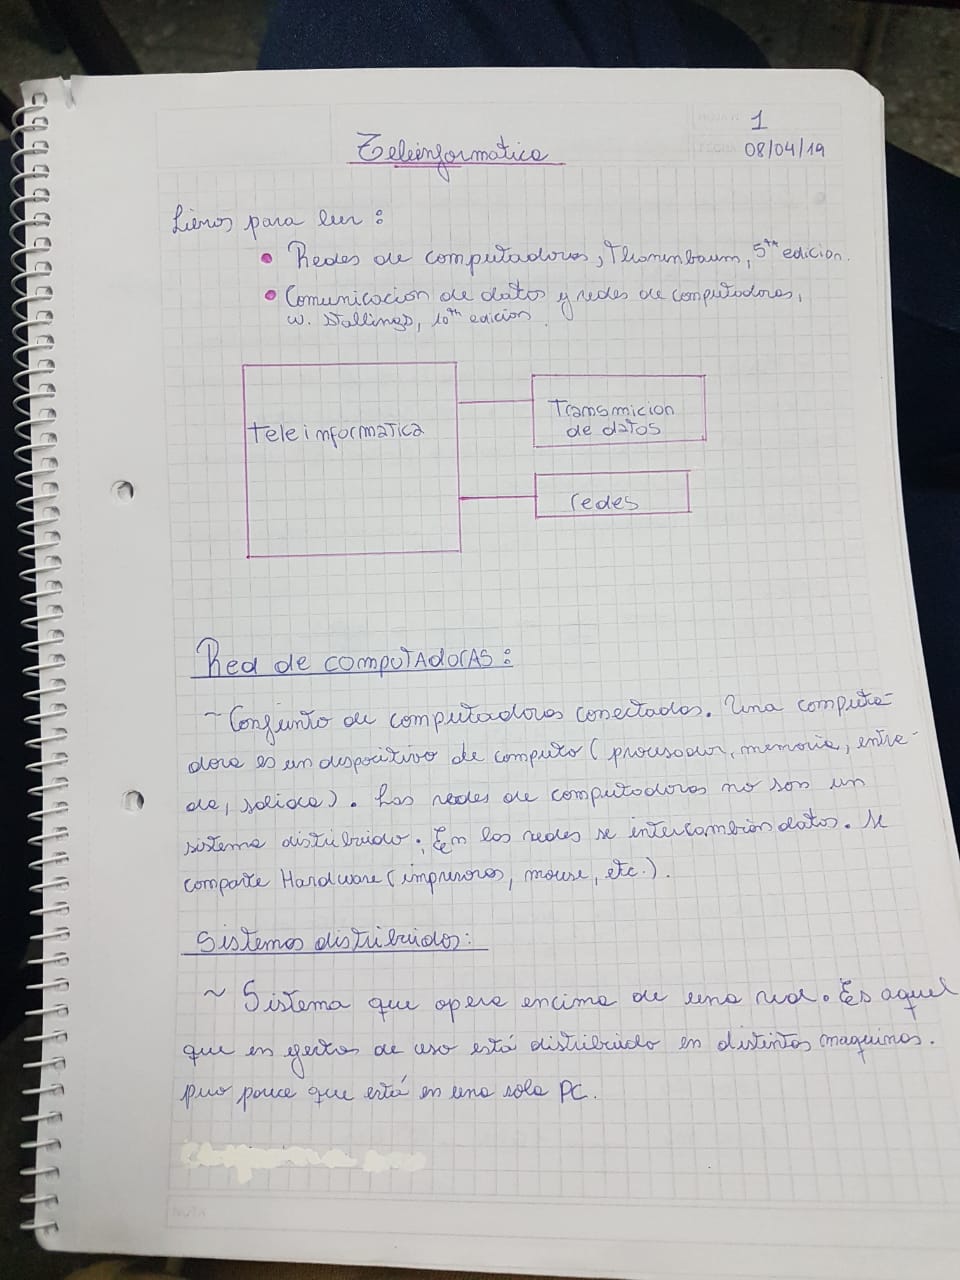 1
Teleinformatica
08/04/19
Libros para leer:
Redes de computadoras, Thanenbaum, 5th edicion.
Comunicacion de datos y redes de computadoras,
W. Stallings, 10th edicion.
Teleinformatica
Transmicion
de datos
redes
Red de computadoras:
~ Conjunto de computadoras conectadas. Una computa-
dora es un dispositivo de computo (procesador, memoria, entra-
da, salida). Las redes de computadoras no son un
sistema distribuido. En las redes se intercambian datos. Se
comparte Hardware (impresoras, mouse, etc.).
Sistemas distribuidos:
~ Sistema que opera encima de una red. Es aquel
que en efectos de uso está distribuido en distintas maquinas.
pero parece que está en una sola PC.
NOTA